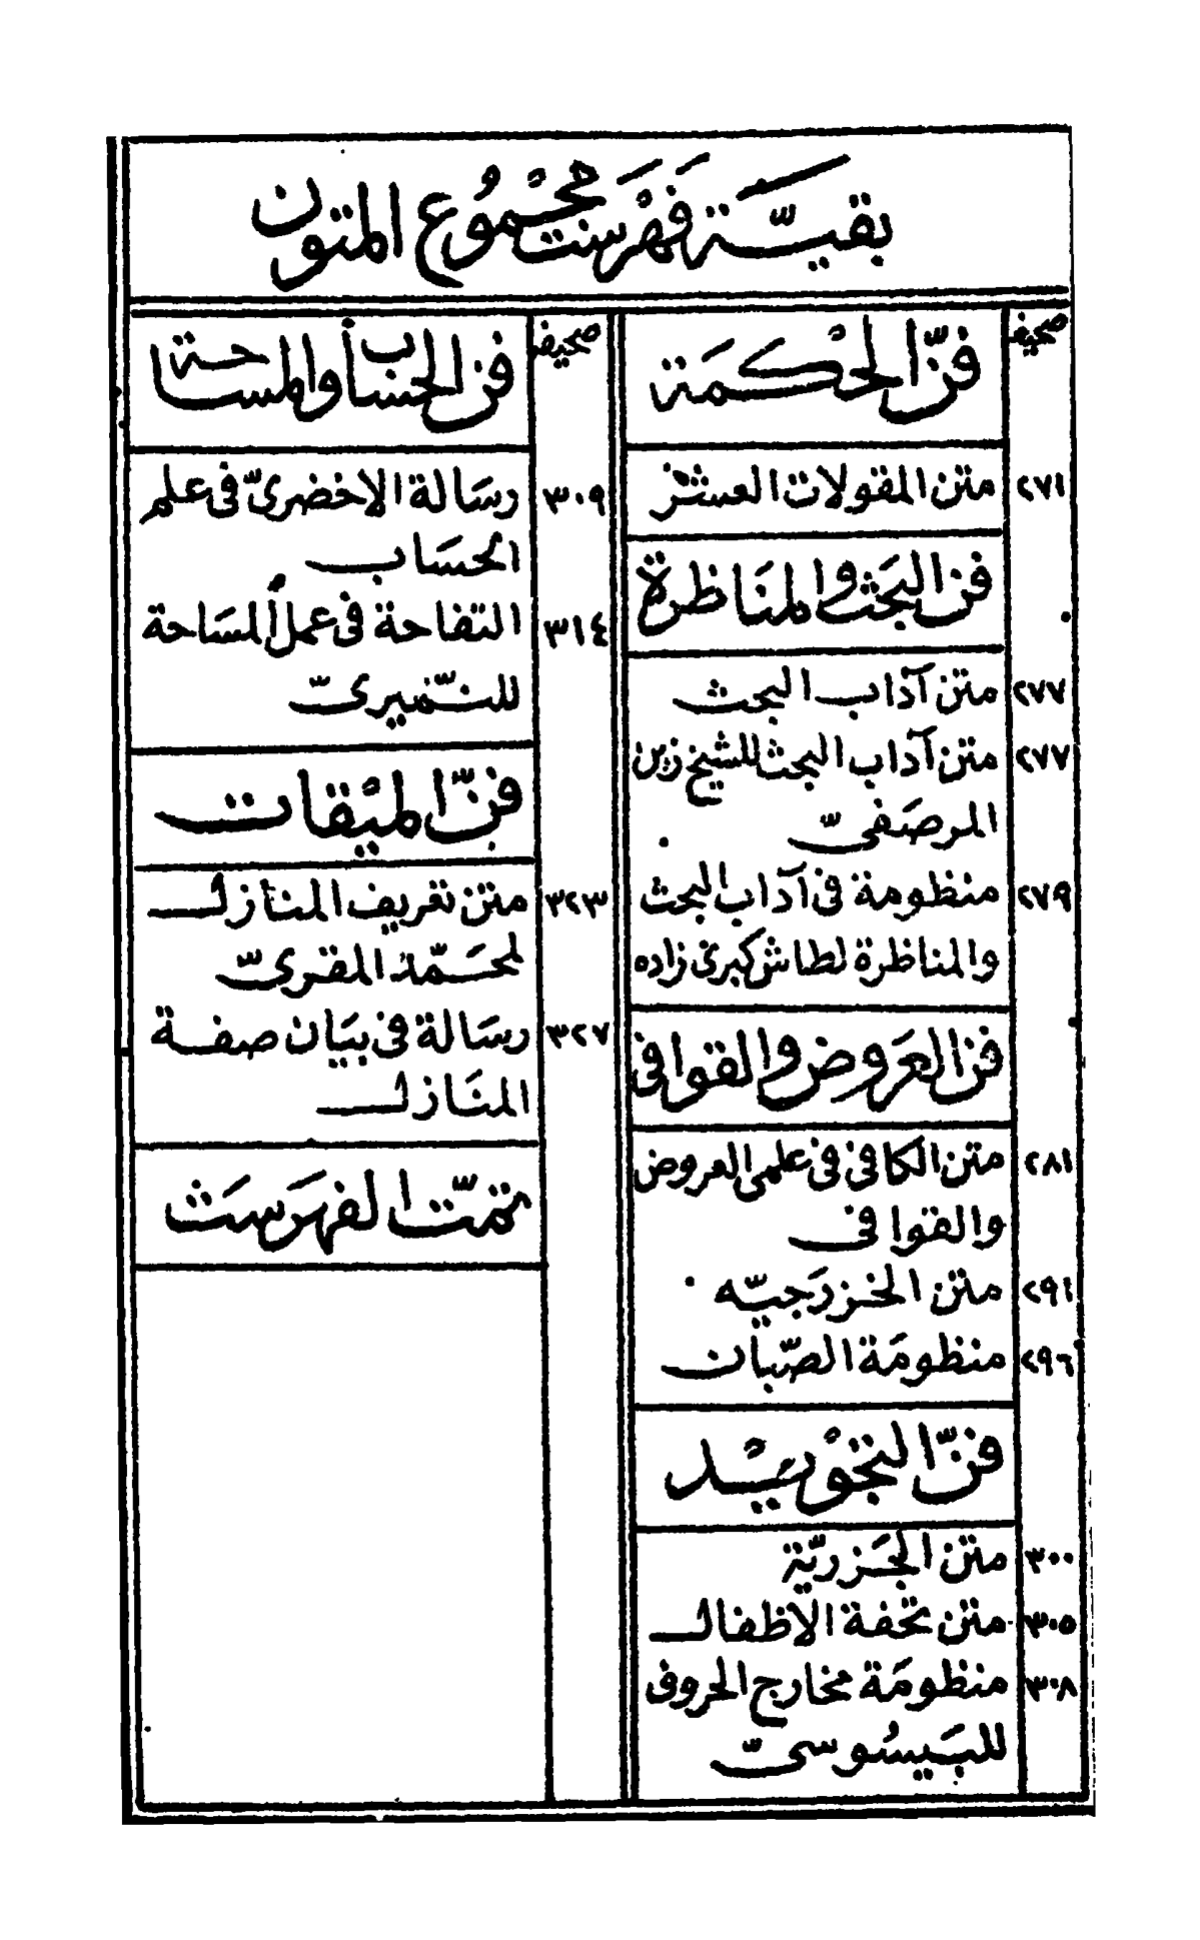 بقيَّة فَهْرَست مَجْمُوع المتون
صحيفه
فنّ الحكْمَة
٢٧١ متن المقولات العشر
فن البحث والمنَاظرة
٢٧٧ متن آدَاب البحث
٢٧٧ متن آدَاب البحث للشيخ زين
المرصَفيّ
٢٧٩ منظومة فى آدَاب البحث
والمناظرة لطاش كبرى زاده
فن العَروض والقوافى
٢٨١ متن الكافى فى علمى العروض
والقوافى
٢٩١ متن الخزرَجيّه
٢٩٦ منظومَة الصّبان
فنّ التجْويْد
٣٠٠ متن الجَزريّة
٣٠٥ متن تحفة الاطفال
٣٠٨ منظومَة مخارج الحروف
للبَيسُوسىّ
صحيفه
فن الحسَاب والمسَاحة
٣٠٩ رسَالة الاخضرىّ فى علم
الحسَاب
٣١٤ التفاحة فى عمل المسَاحة
للنّميرىّ
فنّ الميْقات
٣٢٣ متن تعريف المنَازل
لمحَمّد المقرىّ
٣٢٧ رسَالة فى بيَان صفة
المنَازل
تمّت الفهَرسَت